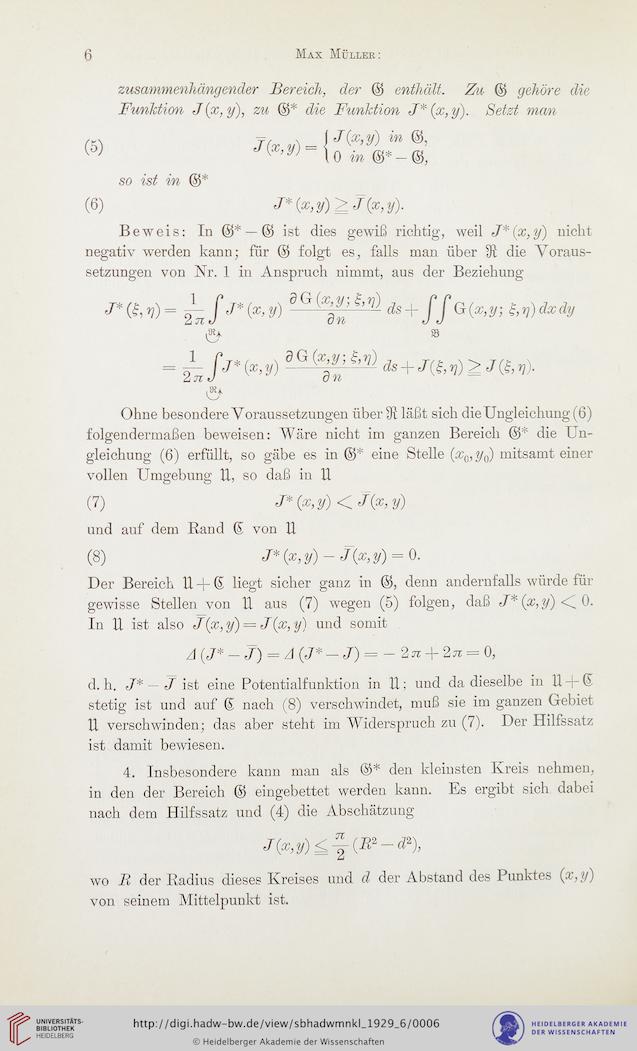 6 MAX MÜLLER:
zusammenhängender Bereich, der 𝔊 enthält. Zu 𝔊 gehöre die
Funktion J(x, y), zu 𝔊* die Funktion J*(x, y). Setzt man
(5) J̄(x, y) = { J(x, y) in 𝔊,
0 in 𝔊* — 𝔊,
so ist in 𝔊*
(6) J*(x, y) ≧ J̄(x, y).
Beweis: In 𝔊* — 𝔊 ist dies gewiß richtig, weil J*(x, y) nicht
negativ werden kann; für 𝔊 folgt es, falls man über ℜ die Voraus-
setzungen von Nr. 1 in Anspruch nimmt, aus der Beziehung
J*(ξ, η) = 1/2π ∫_ℜ J*(x, y) ∂G(x, y; ξ, η)/∂n ds + ∬_𝔅 G(x, y; ξ, η) dx dy
= 1/2π ∫_ℜ J*(x, y) ∂G(x, y; ξ, η)/∂n ds + J(ξ, η) ≧ J(ξ, η).
Ohne besondere Voraussetzungen über ℜ läßt sich die Ungleichung (6)
folgendermaßen beweisen: Wäre nicht im ganzen Bereich 𝔊* die Un-
gleichung (6) erfüllt, so gäbe es in 𝔊* eine Stelle (x₀, y₀) mitsamt einer
vollen Umgebung 𝔘, so daß in 𝔘
(7) J*(x, y) < J̄(x, y)
und auf dem Rand ℭ von 𝔘
(8) J*(x, y) — J̄(x, y) = 0.
Der Bereich 𝔘 + ℭ liegt sicher ganz in 𝔊, denn andernfalls würde für
gewisse Stellen von 𝔘 aus (7) wegen (5) folgen, daß J*(x, y) < 0.
In 𝔘 ist also J̄(x, y) = J(x, y) und somit
Δ(J* — J̄) = Δ(J* — J) = — 2π + 2π = 0,
d. h. J* — J̄ ist eine Potentialfunktion in 𝔘; und da dieselbe in 𝔘 + ℭ
stetig ist und auf ℭ nach (8) verschwindet, muß sie im ganzen Gebiet
𝔘 verschwinden; das aber steht im Widerspruch zu (7). Der Hilfssatz
ist damit bewiesen.
4. Insbesondere kann man als 𝔊* den kleinsten Kreis nehmen,
in den der Bereich 𝔊 eingebettet werden kann. Es ergibt sich dabei
nach dem Hilfssatz und (4) die Abschätzung
J(x, y) ≦ π/2 (R² — d²),
wo R der Radius dieses Kreises und d der Abstand des Punktes (x, y)
von seinem Mittelpunkt ist.
UNIVERSITÄTS-
BIBLIOTHEK
HEIDELBERG
http://digi.hadw-bw.de/view/sbhadwmnkl_1929_6/0006
© Heidelberger Akademie der Wissenschaften
HEIDELBERGER AKADEMIE
DER WISSENSCHAFTEN